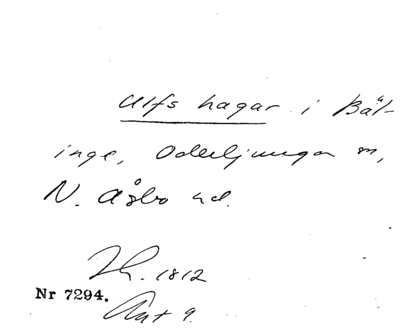 Ulfs hagar i Bäl-
inge, Oderljunga sn,
N. Åsbo hd.
Lh. 1812
Nr 7294.
Akt 9.